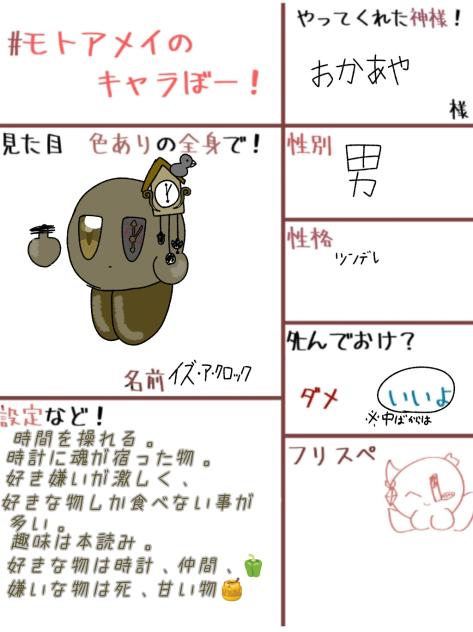 #モトアメイの
キャラぼー！
やってくれた神様！
おかあや
様
見た目 色ありの全身で！
名前 イズ・ア・クロック
性別
男
性格
ツンデレ
死んでおけ？
ダメ
いいよ
※中ばからは
フリスペ
設定など！
時間を操れる。
時計に魂が宿った物。
好き嫌いが激しく、
好きな物しか食べない事が
多い。
趣味は本読み。
好きな物は時計、仲間、🫑
嫌いな物は死、甘い物🍯